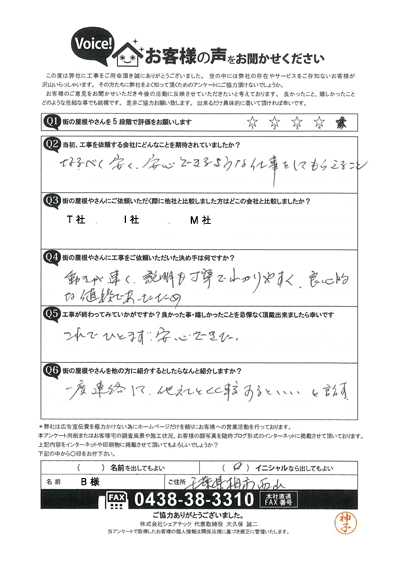 Voice! お客様の声をお聞かせください
この度は弊社に工事をご用命頂き誠にありがとうございました。世の中には弊社の存在やサービスをご存知ないお客様が
沢山いらっしゃいます。その方たちに弊社をよく知って頂くためのアンケートにご協力頂けないでしょうか。
お客様のご意見をお聞かせいただき今後の活動に反映させていただきたいと考えております。良かったこと、嬉しかったこと
どのような些細な事でも結構です。是非ご協力お願い致します。出来るだけ具体的に書いて頂ければ幸いです。
Q1 街の屋根やさんを5段階で評価をお願いします ☆ ☆ ☆ ☆ ★
Q2 当初、工事を依頼する会社にどんなことを期待されていましたか?
なるべく安く、安心できるような仕事をしてもらえること
Q3 街の屋根やさんにご依頼いただく際に他社と比較しました方はどこの会社と比較しましたか?
T社 . I社 M社
Q4 街の屋根やさんに工事をご依頼いただいた決め手は何ですか?
動きが早く、説明も丁寧でわかりやすく、良心的
な値段であったため
Q5 工事が終わってみていかがですか?良かった事・嬉しかったことを忌憚なく頂戴出来ましたら幸いです
これでひとまず安心できた。
Q6 街の屋根やさんを他の方に紹介するとしたらなんと紹介しますか?
一度連絡して、他社と比較するといい と話す
*弊社は広告宣伝費を極力かけない為にホームページだけを頼りにお客様への営業活動を行っております。
本アンケート用紙またはお客様宅の調査風景や施工状況、お客様の顔写真を随時ブログ形式のインターネットに掲載させて頂いております。
上記内容をインターネットや印刷物に掲載させて頂いてもよろしいでしょうか?
下記の中から〇印をお付け下さい。
( ) 名前を出してもよい (〇) イニシャルなら出してもよい
名前 B様 ご住所 千葉県柏市西山
FAX 0438-38-3310 本社直通 FAX番号
ご協力ありがとうございました。
株式会社シェアテック 代表取締役 大久保 誠二
当アンケートで取得したお客様の個人情報は関係法規に基づき厳正に管理いたします。
神子